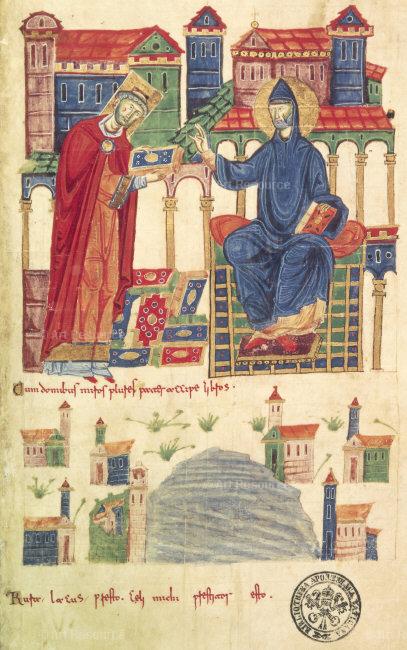 Cum domibus miros plures pater accipe libros.
Rura. lacus p̄sto. Celi michi p̄stitor esto.
BIBLIOTHECA APOSTOLICA VATICANA
Art Resource